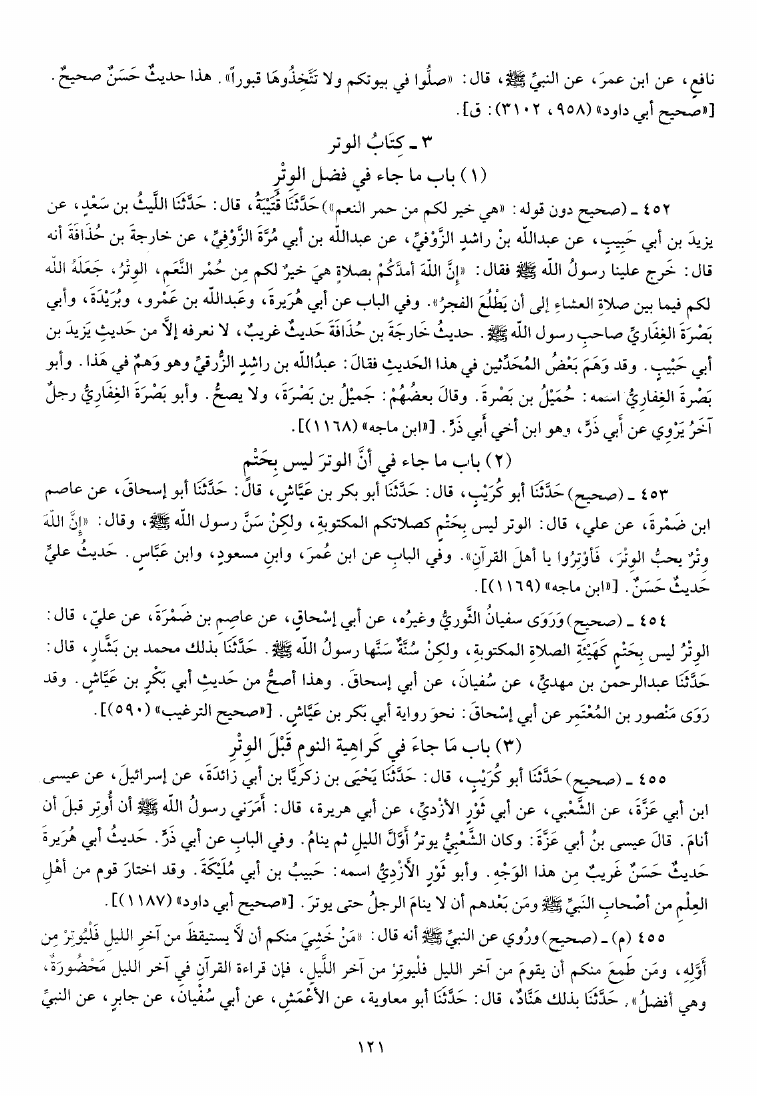 نافعٍ، عن ابن عمرَ، عن النبيِّ ﷺ، قال: «صلُّوا في بيوتكم ولا تَتَّخِذُوهَا قبوراً». هذا حديثٌ حَسَنٌ صحيحٌ.
[«صحيح أبي داود» (٩٥٨، ٣١٠٢): ق].
٣ ـ كِتَابُ الوتر
(١) باب ما جاء في فضل الوِتْرِ
٤٥٢ ـ (صحيح دون قوله: «هي خير لكم من حمر النعم») حَدَّثَنَا قُتَيْبَةُ، قال: حَدَّثَنَا اللَّيثُ بن سَعْدٍ، عن
يزيدَ بن أبي حَبِيبٍ، عن عبدالله بنْ راشدٍ الزَّوْفيِّ، عن عبدالله بن أبي مُرَّةَ الزَّوْفِيِّ، عن خارجةَ بن حُذَافَةَ أنه
قال: خَرج علينا رسولُ الله ﷺ فقال: «إنَّ اللهَ أمدَّكُمْ بصلاةٍ هيَ خيرٌ لكم مِن حُمْر النَّعَم، الوِترُ، جَعَلَهُ الله
لكم فيما بين صلاةِ العشاءِ إلى أن يَطْلُعَ الفجرُ». وفي الباب عن أبي هُرَيرةَ، وعَبدالله بن عَمْرو، وبُرَيْدَةَ، وأبي
بَصْرَةَ الغِفَاريِّ صاحبِ رسول الله ﷺ. حديثُ خارجةَ بن حُذَافَةَ حديثٌ غريبٌ، لا نعرفه إلَّا من حَديثِ يَزيدَ بن
أبي حَبْيبٍ. وقد وَهَمَ بَعْضُ المُحَدِّثين في هذا الحَديثِ فقالَ: عبدُالله بن راشدٍ الزُّرقيِّ وهو وَهمٌ في هَذا. وأبو
بَصْرةَ الغِفاريُّ اسمه: حُمَيْلُ بن بَصْرةَ. وقالَ بعضُهُمْ: جَميْلُ بن بَصْرَةَ، ولا يصحُّ. وأبو بَصْرَةَ الغِفَاريُّ رجلٌ
آخرُ يَرْوِي عن أبي ذَرٍّ، وهو ابن أخي أبي ذَرٍّ. [«ابن ماجه» (١١٦٨)].
(٢) باب ما جاء في أنَّ الوترَ ليس بِحَتْمٍ
٤٥٣ ـ (صحيح) حَدَّثَنَا أبو كُرَيْبٍ، قال: حَدَّثَنَا أبو بكر بن عَيَّاشٍ، قال: حَدَّثَنَا أبو إسحاقَ، عن عاصم
ابن ضَمْرةَ، عن علي، قال: الوتر ليس بِحَتْمٍ كصلاتكم المكتوبةِ، ولكنْ سَنَّ رسول الله ﷺ، وقال: «إنَّ اللهَ
وِتْرٌ يحبُّ الوِتْرَ، فَأوْتِرُوا يا أهلَ القرآنِ». وفي البابِ عن ابن عُمَرَ، وابنِ مسعودٍ، وابن عَبَّاسٍ. حَديثُ عليٍّ
حَديثٌ حَسَنٌ. [«ابن ماجه» (١١٦٩)].
٤٥٤ ـ (صحيح) وَرَوَى سفيانُ الثَّوريُّ وغيرُه، عن أبي إسْحاقٍ، عن عاصِم بن ضَمْرَةَ، عن عليّ، قال:
الوِتْرُ ليس بِحَتْمٍ كَهَيْئَةِ الصلاةِ المكتوبةِ، ولكنْ سُنَّةٌ سَنَّها رسولُ اللهِ ﷺ. حَدَّثَنَا بذلك محمد بن بَشَّارٍ، قال:
حَدَّثَنَا عبدالرحمن بن مهديٍّ، عن سُفيانَ، عن أبي إسحاقَ. وهذا أصحُّ من حَديثِ أبي بَكْرِ بن عَيَّاشٍ. وقد
رَوَى مَنْصور بن المُعْتَمِر عن أبي إسْحاقَ: نحوَ رواية أبي بَكر بن عَيَّاشٍ. [«صحيح الترغيب» (٥٩٠)].
(٣) باب مَا جاءَ في كَراهيةِ النوم قَبْلَ الوِتْرِ
٤٥٥ ـ (صحيح) حَدَّثَنَا أبو كُرَيْبٍ، قال: حَدَّثَنَا يَحْيَى بن زكَرِيَّا بن أبي زائدَةَ، عن إسرائيلَ، عن عيسى
ابن أبي عَزَّةَ، عن الشَّعْبي، عن أبي ثَوْرٍ الأزْديِّ، عن أبي هريرة، قال: أمَرَني رسولُ اللهِ ﷺ أن أُوتِر قبلَ أن
أنامَ. قالَ عيسى بنُ أبي عَزَّةَ: وكان الشَّعْبِيُّ يوترُ أوَّلَ الليلِ ثم ينامُ. وفي البابِ عن أبي ذَرٍّ. حَديثُ أبي هُرَيرةَ
حَديثٌ حَسَنٌ غَريبٌ مِن هذا الوَجْهِ. وأبو ثَوْرٍ الأزْديُّ اسمه: حَبيبُ بن أبي مُلَيْكَةَ. وقد اختارَ قوم من أهْلِ
العِلْمِ من أصْحابِ النَّبيِّ ﷺ ومَن بَعْدهم أن لا ينامَ الرجلُ حتى يوترَ. [«صحيح أبي داود» (١١٨٧)].
٤٥٥ (م) ـ (صحيح) ورُوي عن النبيِّ ﷺ أنه قال: «مَنْ خَشِيَ منكم أن لَّا يستيقظَ من آخرِ الليلِ فَلْيُوتِرْ مِن
أوَّلِهِ، ومَن طَمِعَ منكم أن يقومَ من آخر الليل فلْيوترْ من آخر اللَّيلِ، فإن قراءة القرآنِ في آخر الليل مَحْضُورَةٌ،
وهي أفضلُ». حَدَّثَنَا بذلك هَنَّادٌ، قال: حَدَّثَنَا أبو معاوية، عن الأعْمَشِ، عن أبي سُفْيانَ، عن جابرٍ، عن النبيِّ
١٢١